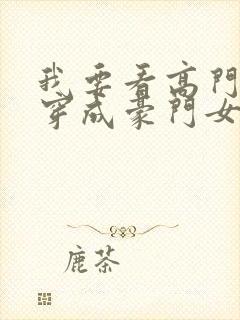 我要看高門
穿成豪門女
鹿茶